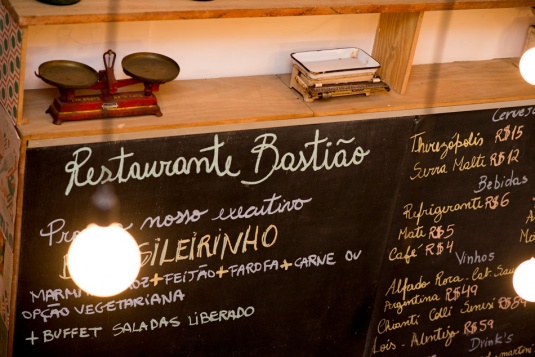 Restaurante Bastião
nosso executivo
SILEIRINHO
+ FEIJÃO + FAROFA + CARNE OU
OPÇÃO VEGETARIANA
+ BUFFET SALADAS LIBERADO
Therezópolis R$15
Serra Malte R$12
Bebidas
Refrigerante R$6
Mate R$5
Café R$4
Vinhos
Alfado Roca
Argentina R$49
Chianti Colli Senesi
Alentejo R$59
Drink's